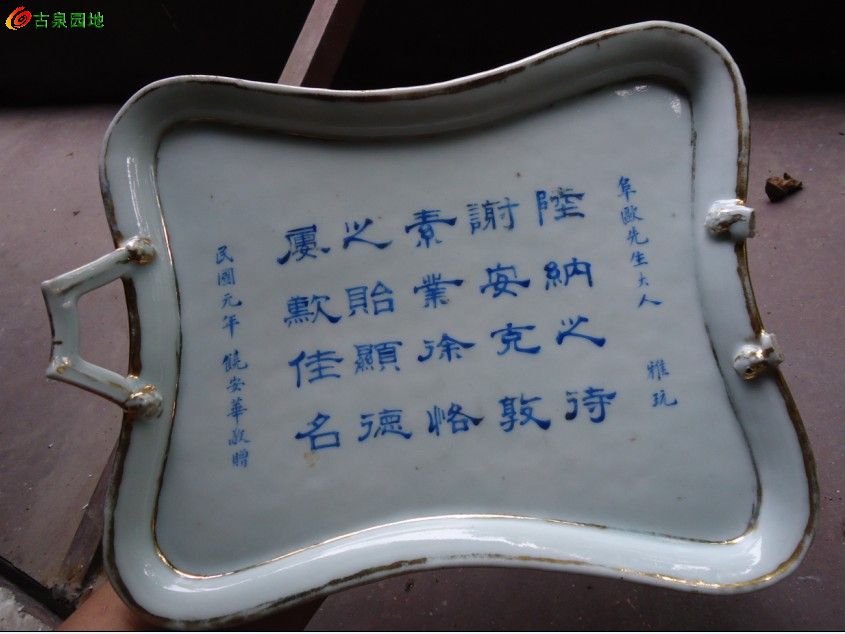 古泉园地
阜歐先生大人
雅玩
陸納之待
謝安克敦
素業徐恪
之貽顯德
屢歎佳名
民國元年
饒安華敬贈